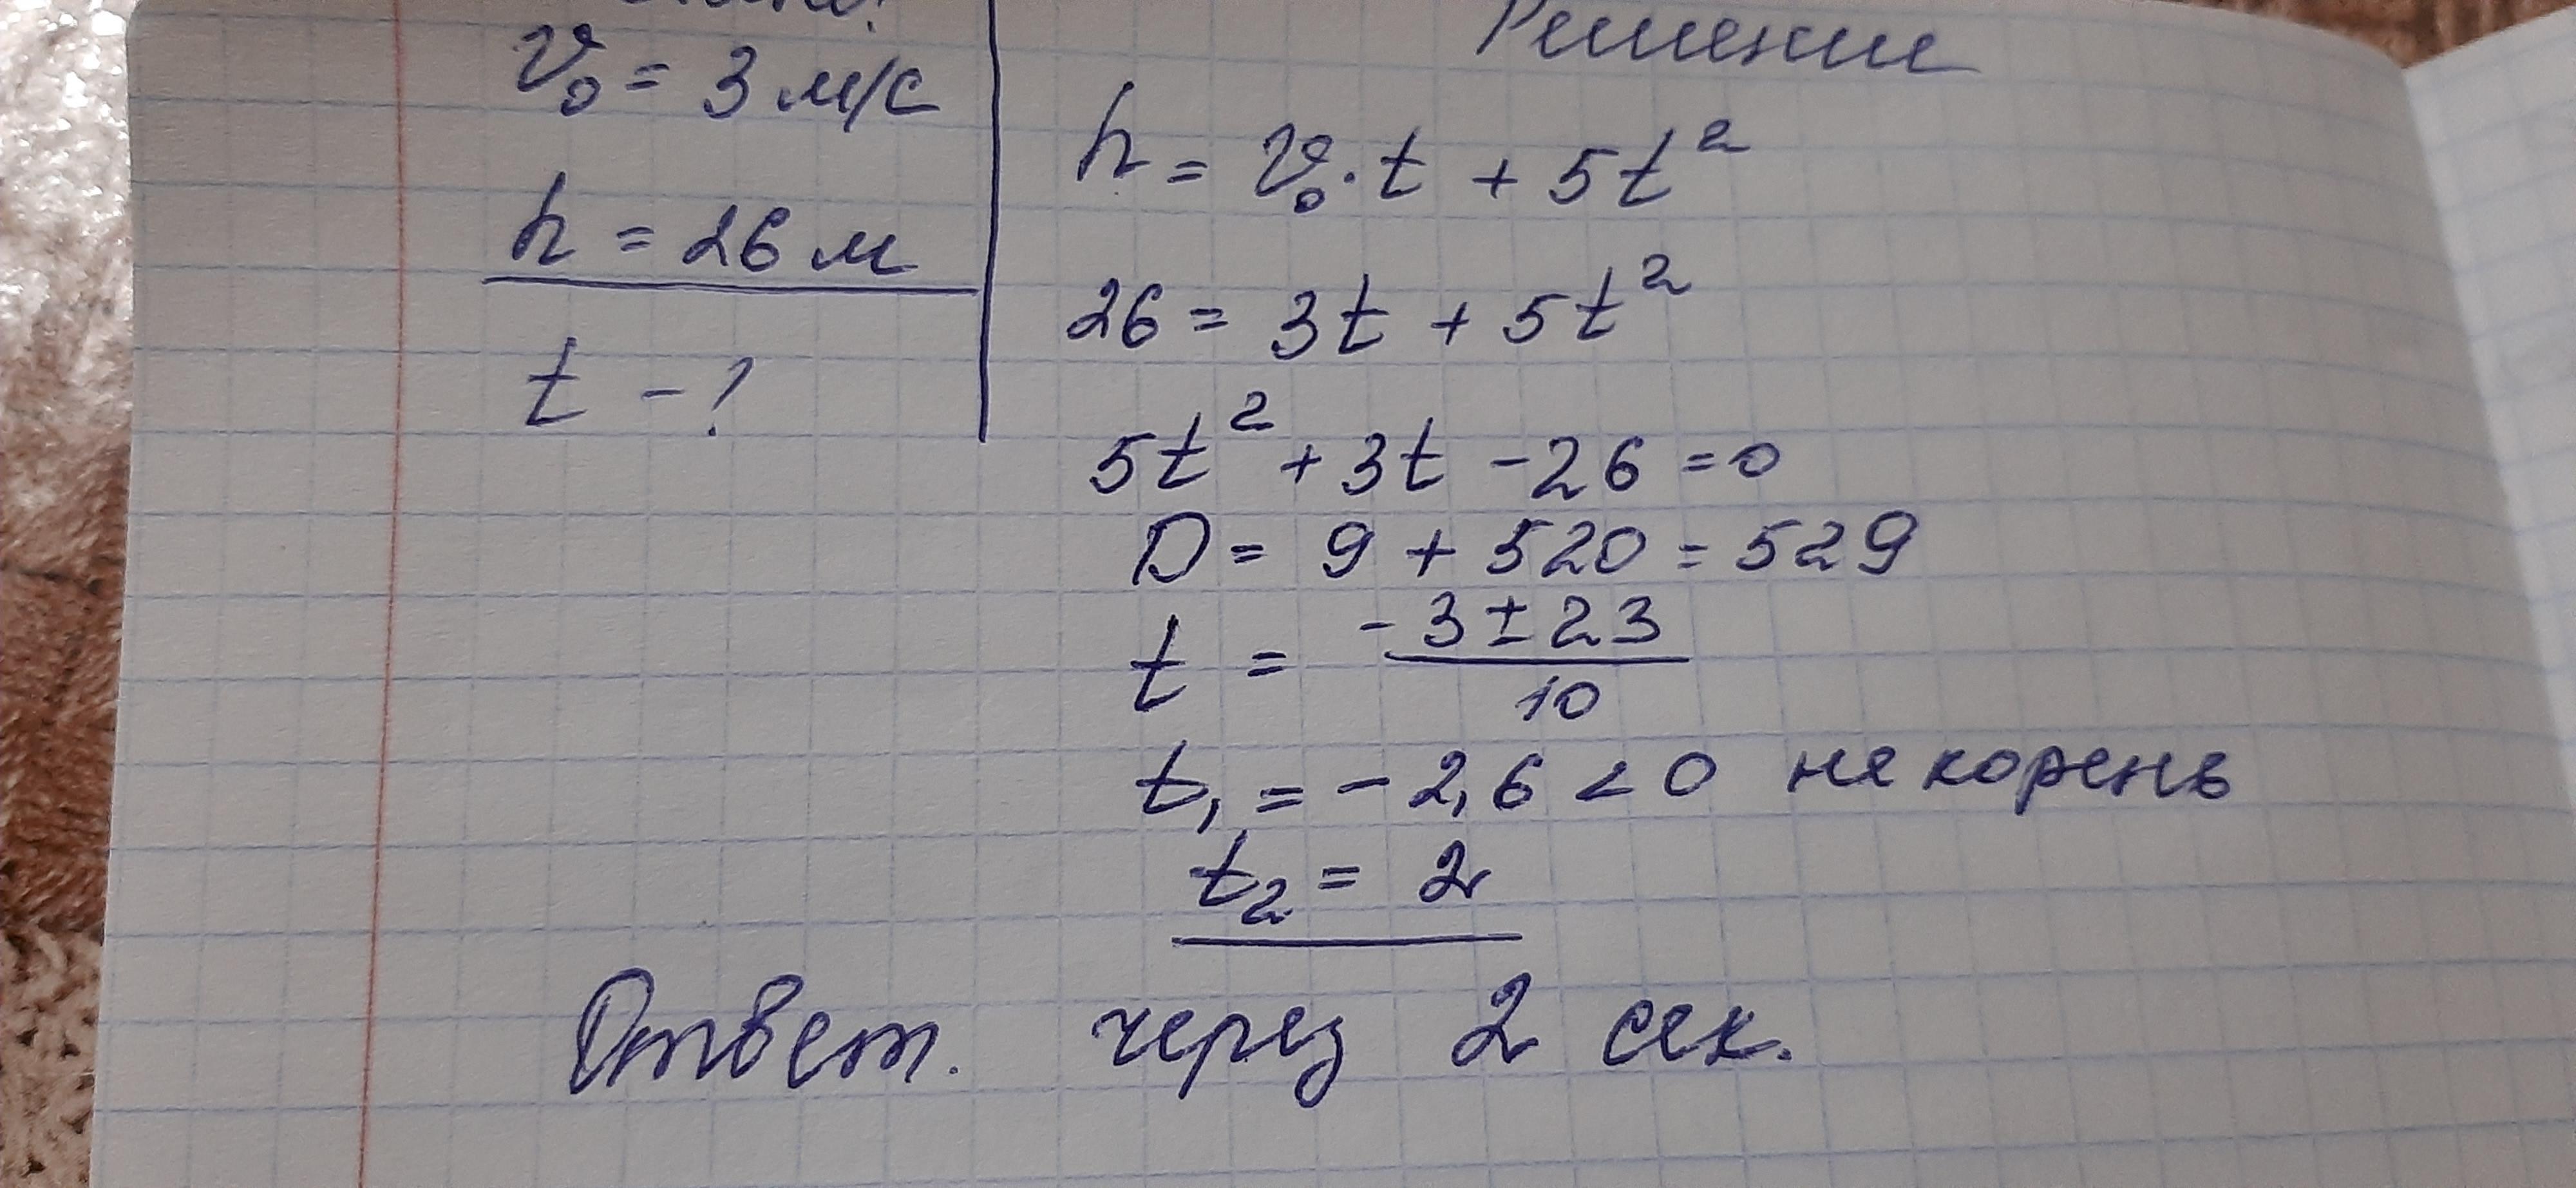 v₀ = 3 м/с
h = 26 м
t - ?
Решение
h = v₀ · t + 5t²
26 = 3t + 5t²
5t² + 3t - 26 = 0
D = 9 + 520 = 529
t = (-3 ± 23) / 10
t₁ = - 2,6 < 0 не корень
t₂ = 2
Ответ. через 2 сек.